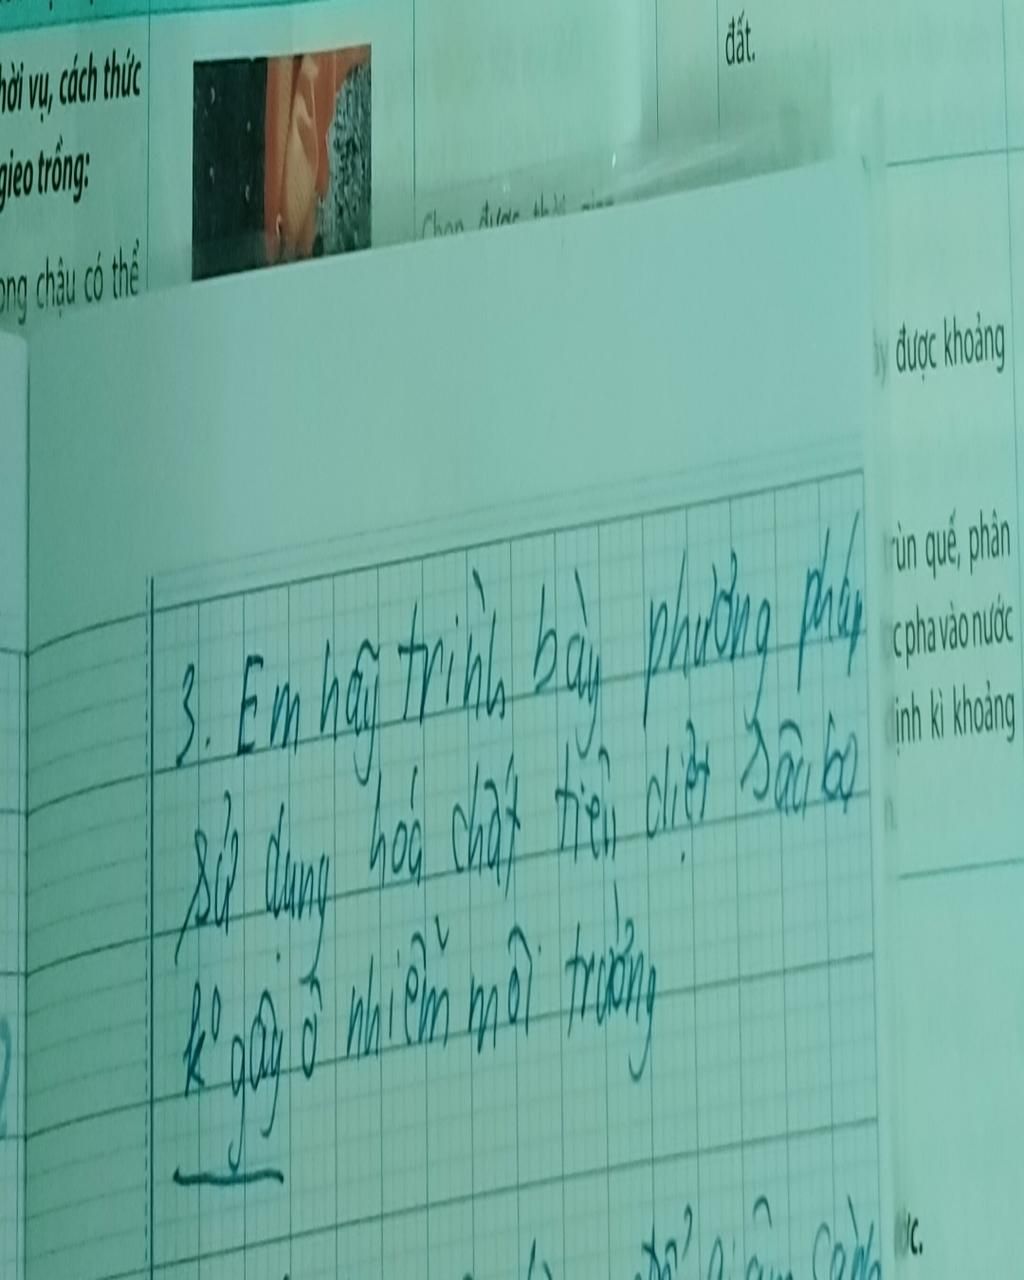 đất.
hời vụ, cách thức
gieo trồng:
ong chậu có thể
Chọn được thời gian
được khoảng
rùn quế, phân
c pha vào nước
ịnh kì khoảng
3. Em hãy trình bày phương pháp
sử dụng hoá chất tiêu diệt sâu bọ
k° gây ô nhiễm môi trường
ớc.